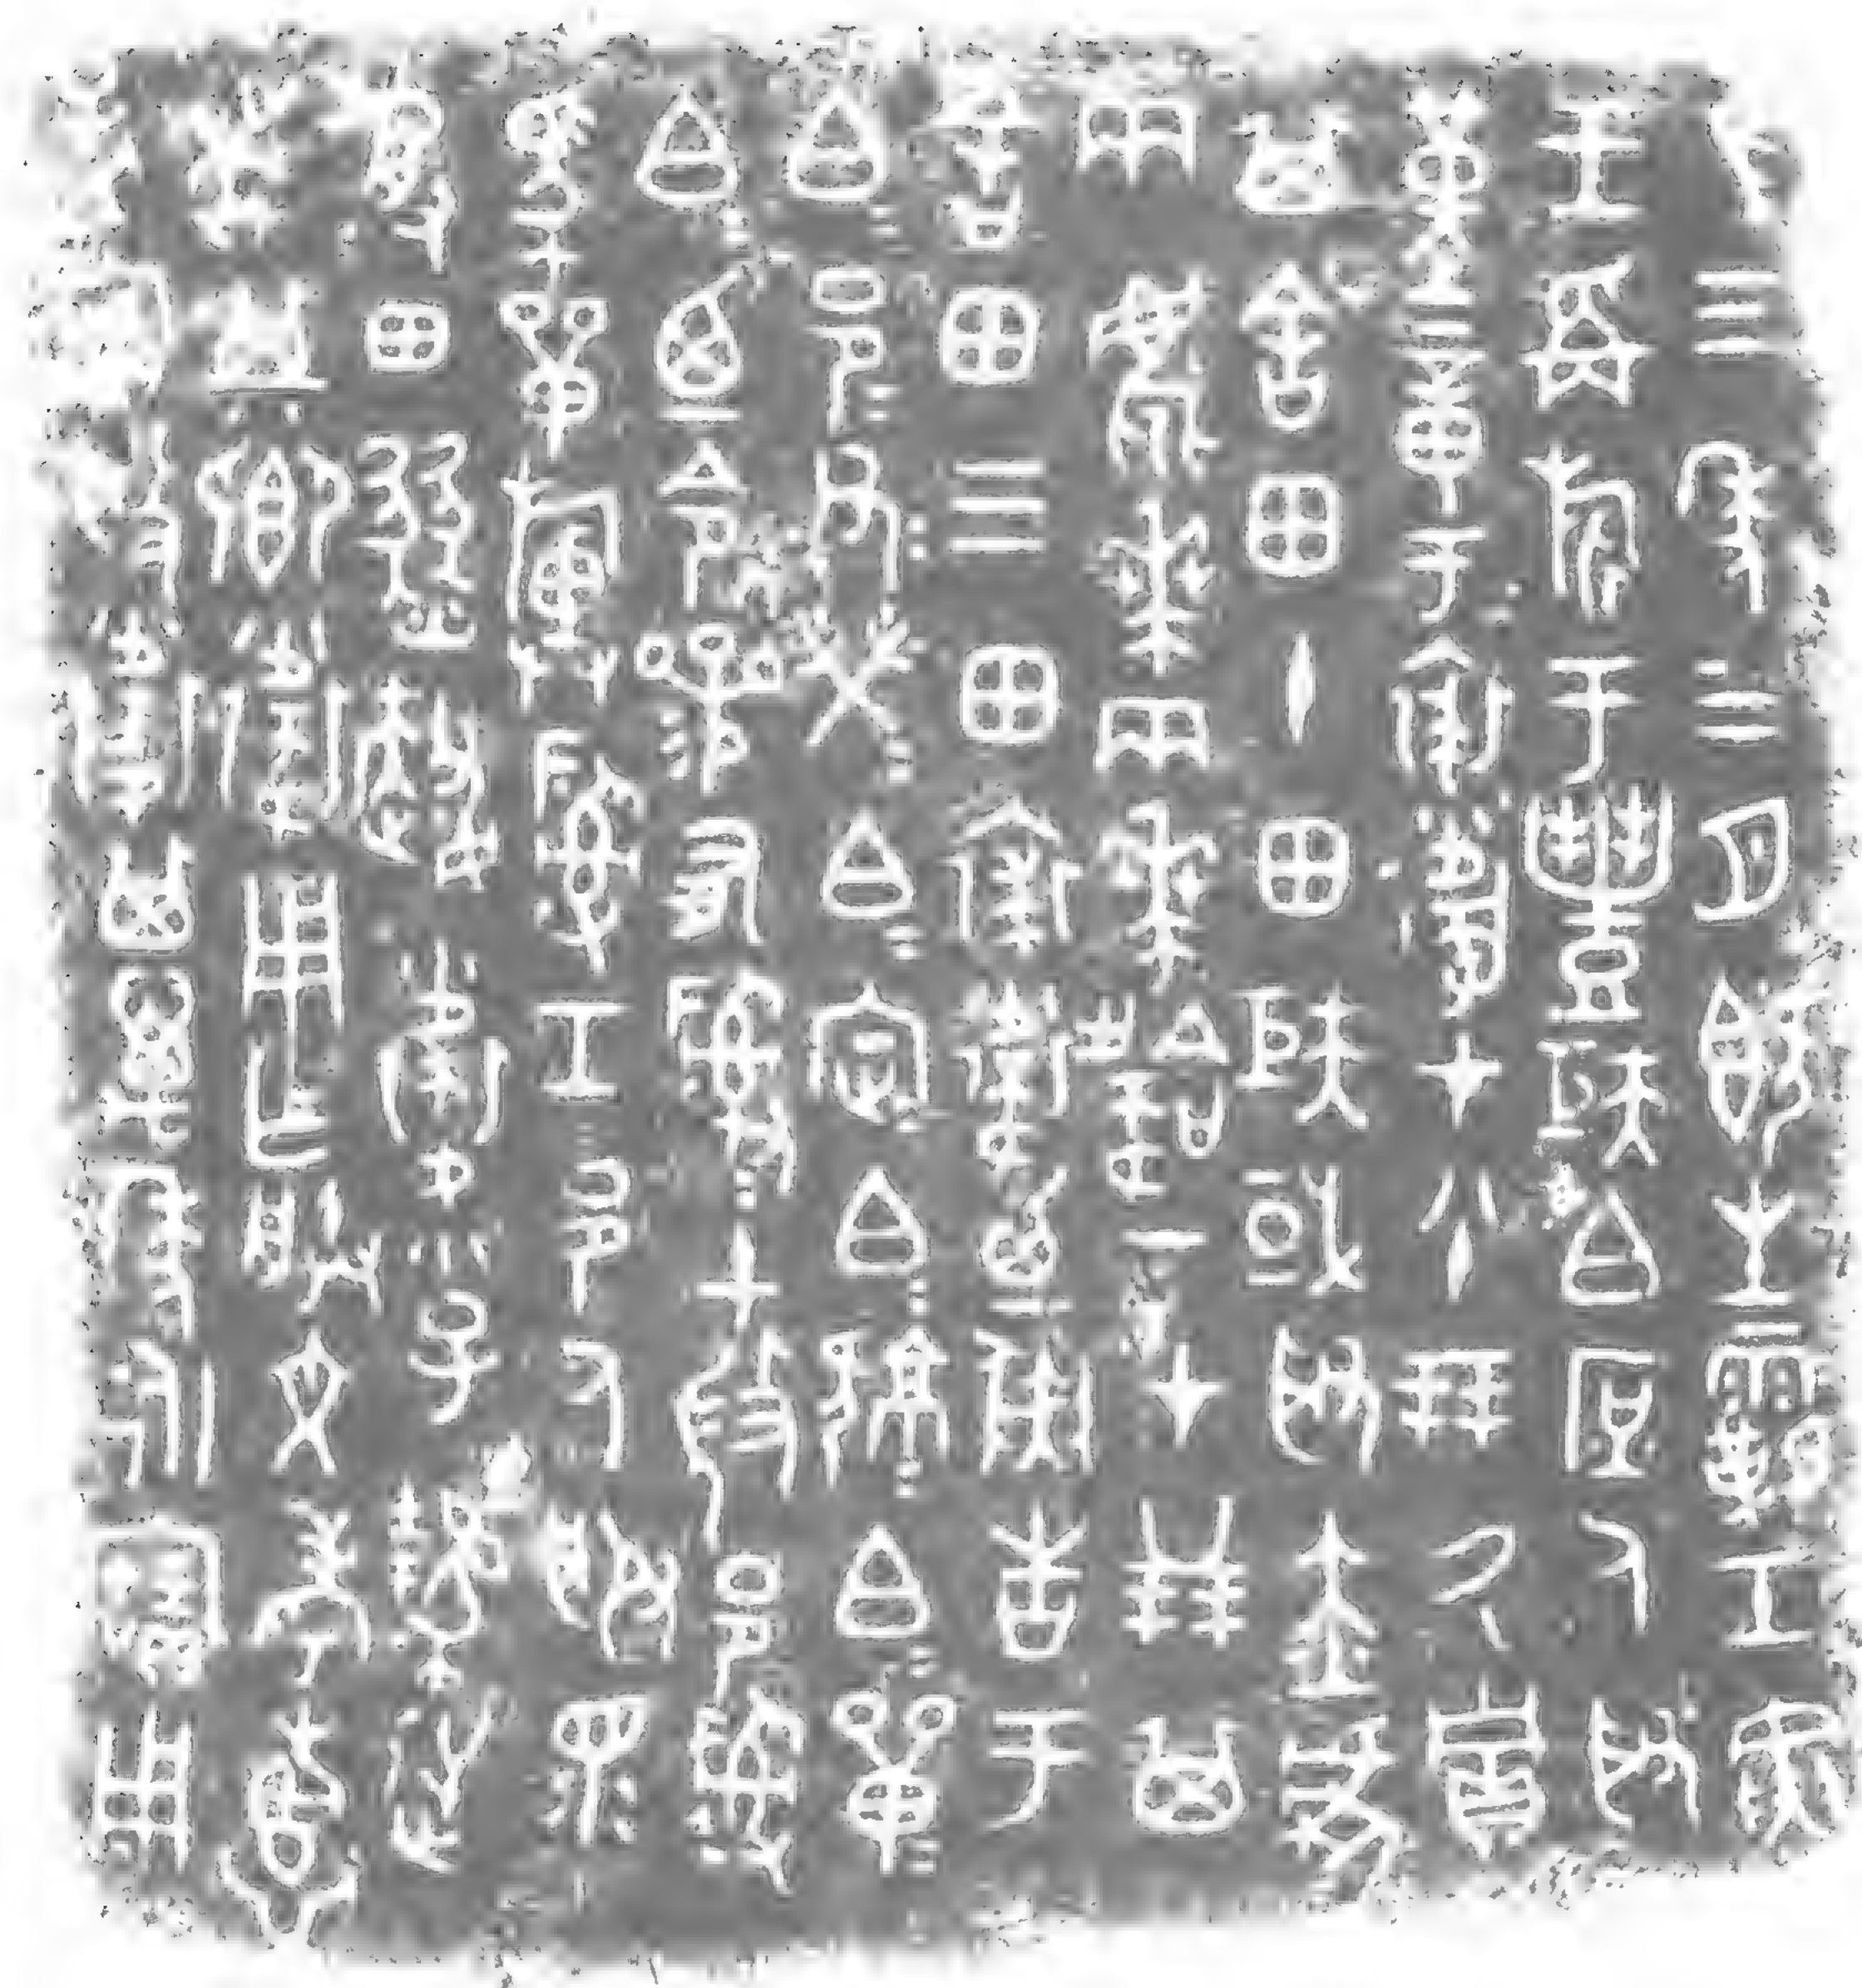 隹三年三月既生霸壬寅
王爯旂于豐矩白庶人取
堇章于裘衛才八十朋氒貯
其舍田十田矩或取赤虎
兩麀𠦪兩𠦪韐一才廿朋其
舍田三田裘衛廼彘告于
白=邑=父=榮=白=定=白=𤔲=白=單=
白=廼令參有𤔲=土微邑𤔲
馬單旟𤔲工邑人服眔
受田燹趞衛小子逆
者其卿衛用乍朕文考惠
孟寶般衛其萬年永寶用